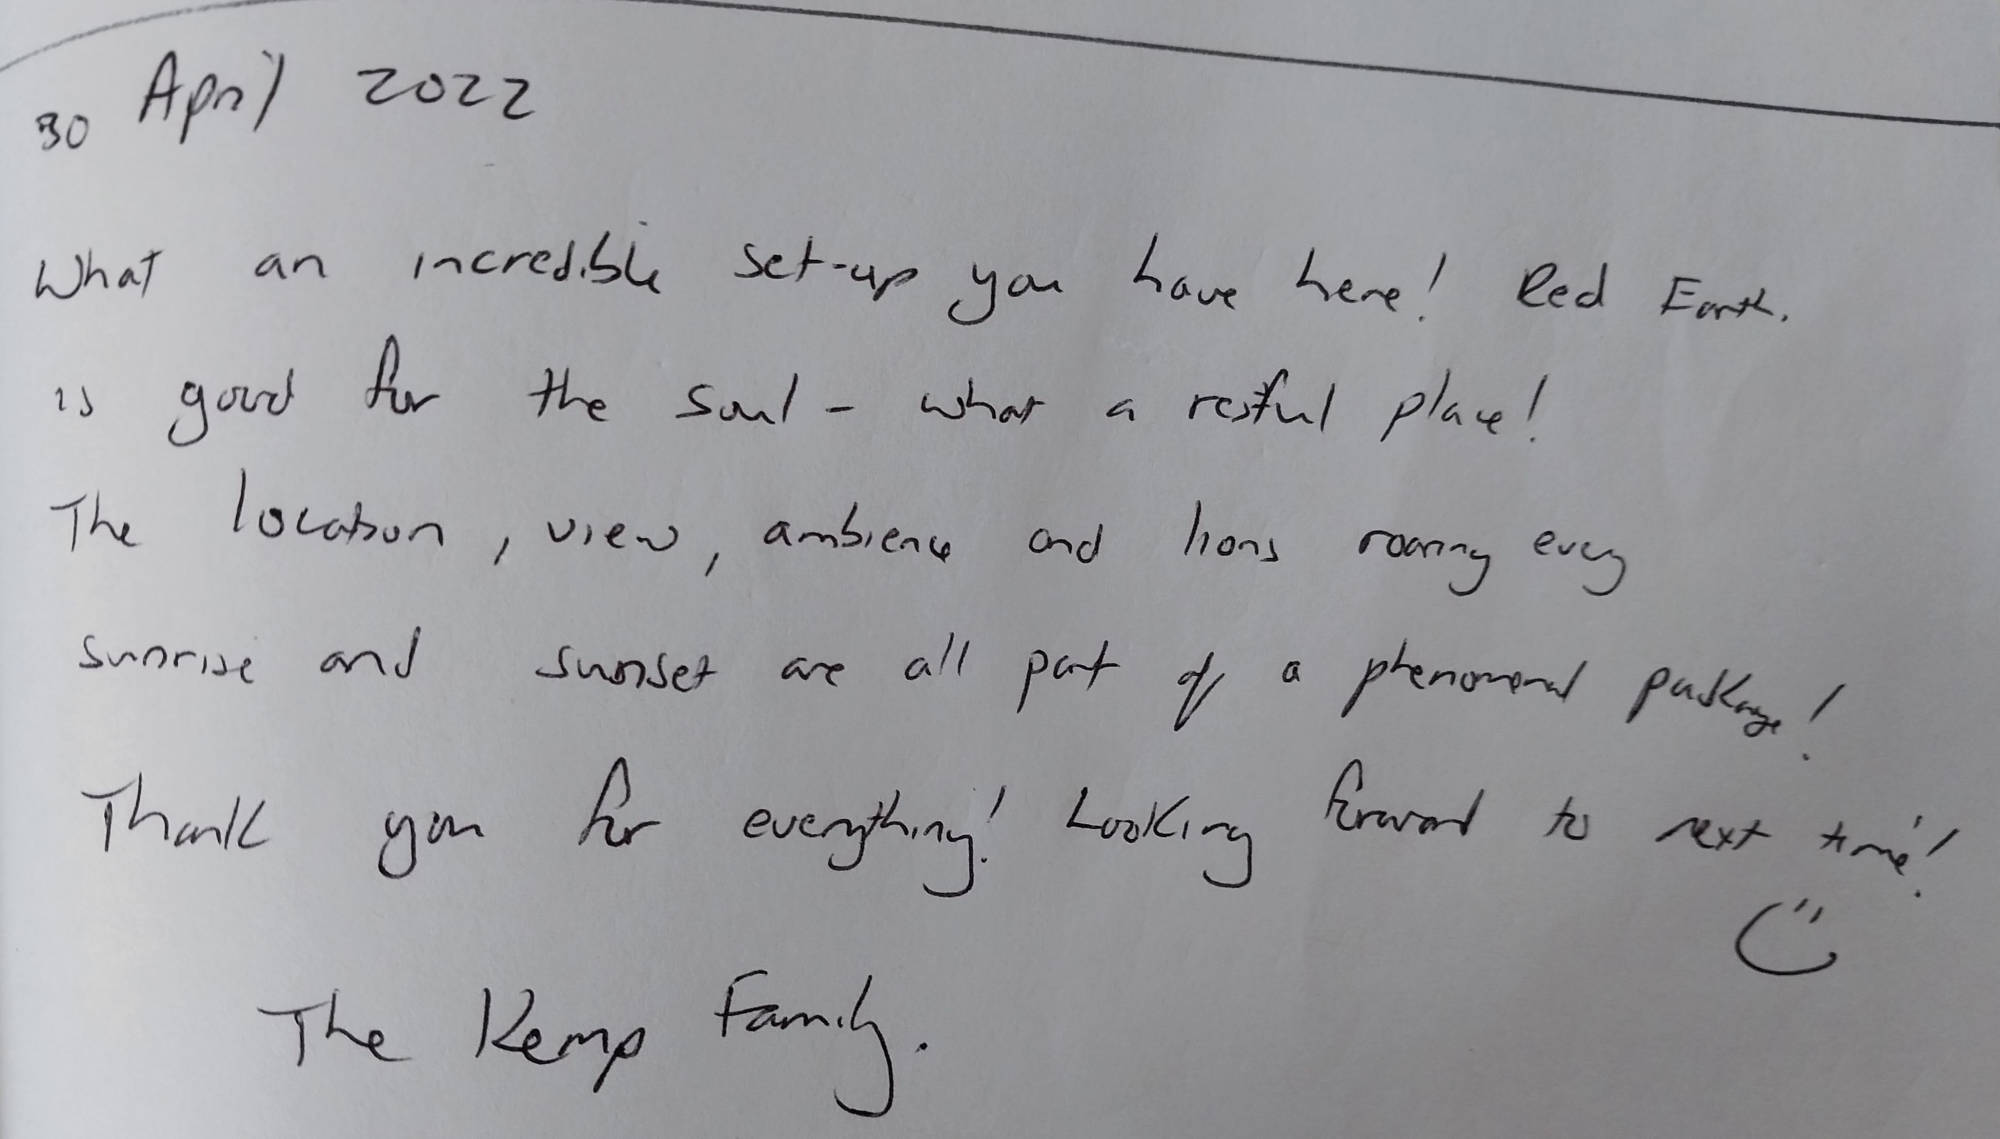 30 April 2022
What an incredible set-up you have here! Red Earth.
is good for the soul - what a restful place!
The location, view, ambience and lions roaring every
sunrise and sunset are all part of a phenomenal package!
Thank you for everything! Looking forward to next time!
The Kemp Family.